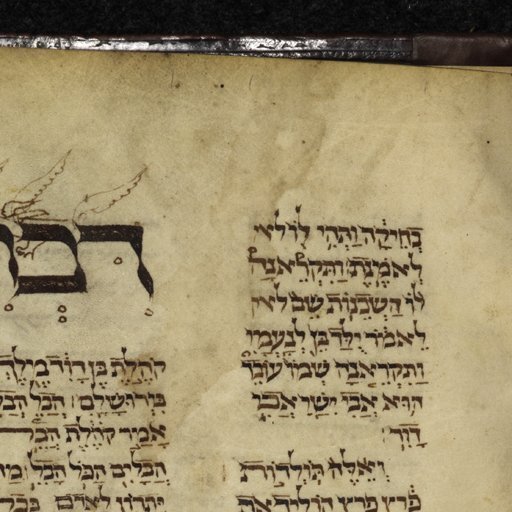 בְחֵיקָהּ וַתְּהִי לוֹ לא
לְאֹמֶנֶת וַתִּקְרֶאנָה
לוֹ הַשְּׁכֵנוֹת שֵׁם לא
לֵאמֹר יֻלַּד בֵּן לְנָעֳמִי
וַתִּקְרֶאנָה שְׁמוֹ עוֹבֵד
הוּא אֲבִי יִשַׁי אֲבִי
דָוִד׃
וְאֵלֶּה תּוֹלְדוֹת
פָּרֶץ פֶּרֶץ הוֹלִיד אֶת
דִבְ
קֹהֶלֶת בֶּן דָּוִד מֶלֶךְ
בִּירוּשָׁלִָם׃ הֲבֵל
אָמַר קֹהֶלֶת הֲבֵל
הֲבָלִים הַכֹּל הָבֶל׃ מַה
יִּתְרוֹן לָאָדָם בְּכָל